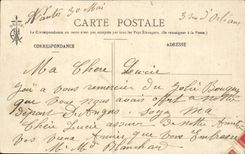 Nantes 30 Mai
3 rue d'Orléans
CARTE POSTALE
La Correspondance au recto n'est pas acceptée par tous les Pays Étrangers. (Se renseigner à la Poste.)
CORRESPONDANCE
ADRESSE
Ma Chère Lucie
J'ai à vous remercier du Jolie Bouquet
que vous nous avais offert a notre
Départ
Chère Lucie assurer de notre Amitié
vos Amies que vous Embrasse
Mr Me Blanchard